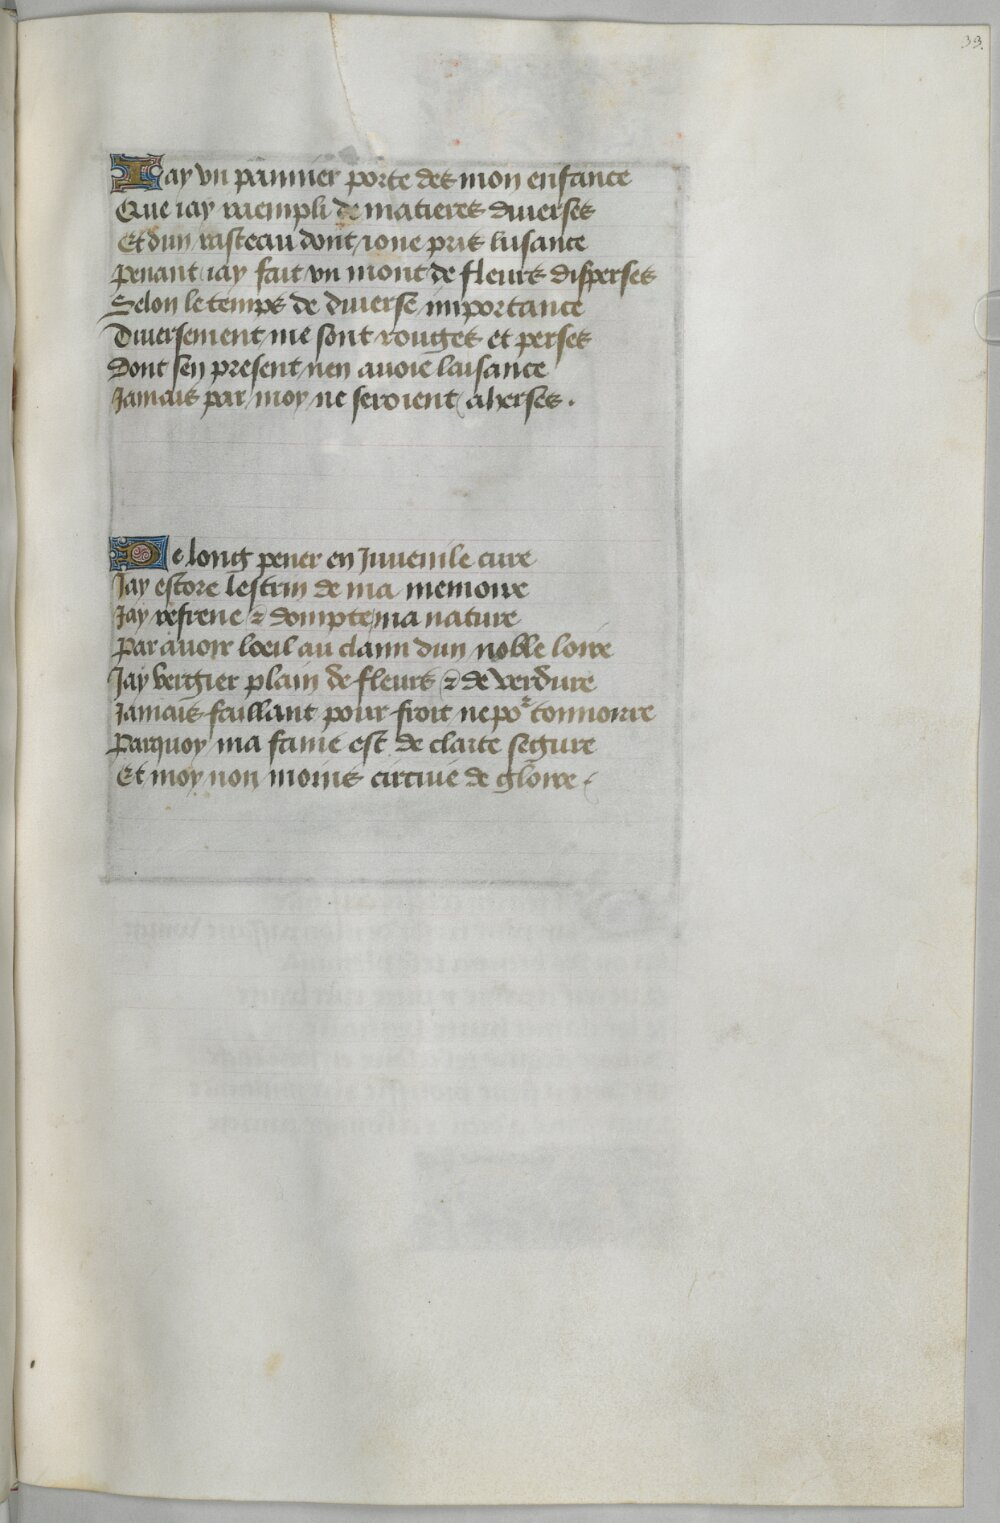 33.
Iay vn pannier porte des mon enfance
Que iay raempli de matieres diuerses
Et dun rasteau dont ione pris lusance
Penant iay fait vn mont de fleurs disperses
Selon le temps de diuerse importance
Diuersement me sont rouges et perses
Dont sen present nen auoie laisance
Jamais par moy ne seroient aherses .
De long pener en Juuenile cure
Jay estore lescrin de ma memoire
Jay refrene & dompte ma nature
Par auoir loeil au clann dun noble loire
Jay vergier plain de fleurs & de verdure
Jamais faillant pour froit ne por tonnoirre
Parquoy ma fame est de clarte segure
Et moy non moins circuie de gloire